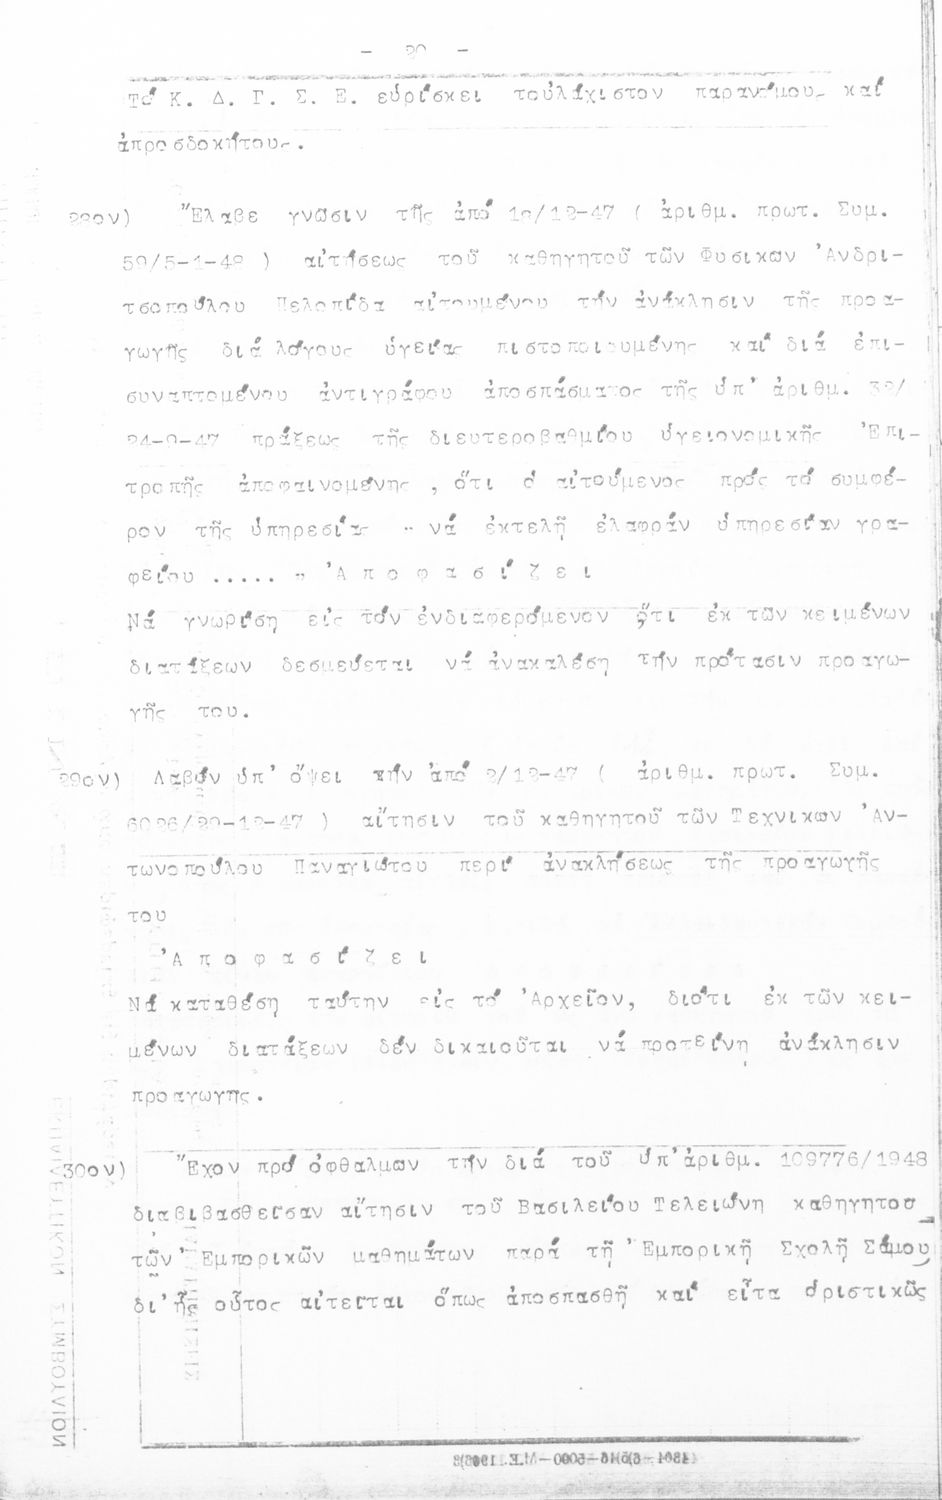 - 20 -
Τό Κ. Δ. Γ. Σ. Ε. εὑρίσκει τοὐλάχιστον παρανόμους καί
ἀπροσδοκήτους.
28ον) Ἔλαβε γνῶσιν τῆς ἀπό 18/12-47 ( ἀριθμ. πρωτ. Συμ.
59/5-1-48 ) αἰτήσεως τοῦ καθηγητοῦ τῶν Φυσικῶν Ἀνδρι-
τσοπούλου Πελοπίδα αἰτουμένου τήν ἀνάκλησιν τῆς προα-
γωγῆς διά λόγους ὑγείας πιστοποιουμένης καί διά ἐπι-
συναπτομένου ἀντιγράφου ἀποσπάσματος τῆς ὑπ' ἀριθμ. 32/
24-9-47 πράξεως τῆς διευτεροβαθμίου ὑγειονομικῆς Ἐπι-
τροπῆς ἀποφαινομένης , ὅτι ὁ αἰτούμενος πρός τό συμφέ-
ρον τῆς ὑπηρεσίας " νά ἐκτελῇ ἐλαφράν ὑπηρεσίαν γρα-
φείου ..... " Ἀ π ο φ α σ ί ζ ε ι
Νά γνωρίσῃ εἰς τόν ἐνδιαφερόμενον ὅτι ἐκ τῶν κειμένων
διατάξεων δεσμεύεται νά ἀνακαλέσῃ τήν πρότασιν προαγω-
γῆς του.
29ον) Λαβόν ὑπ' ὄψει τήν ἀπό 2/12-47 ( ἀριθμ. πρωτ. Συμ.
6026/29-12-47 ) αἴτησιν τοῦ καθηγητοῦ τῶν Τεχνικῶν Ἀν-
τωνοπούλου Παναγιώτου περί ἀνακλήσεως τῆς προαγωγῆς
του
Ἀ π ο φ α σ ί ζ ε ι
Νά καταθέσῃ ταύτην εἰς τό Ἀρχεῖον, διότι ἐκ τῶν κει-
μένων διατάξεων δέν δικαιοῦται νά προτείνῃ ἀνάκλησιν
προαγωγης.
30ον) Ἔχον πρό ὀφθαλμων τήν διά τοῦ ὑπ'ἀριθμ. 109776/1948
διαβιβασθεῖσαν αἴτησιν τοῦ Βασιλείου Τελειώνη καθηγητοσ
τῶν Ἐμπορικῶν μαθημάτων παρά τῇ Ἐμπορικῇ Σχολῇ Σάμου
δι'ἧς οὗτος αἰτεῖται ὅπως ἀποσπασθῇ καί εἶτα ὁριστικῶς